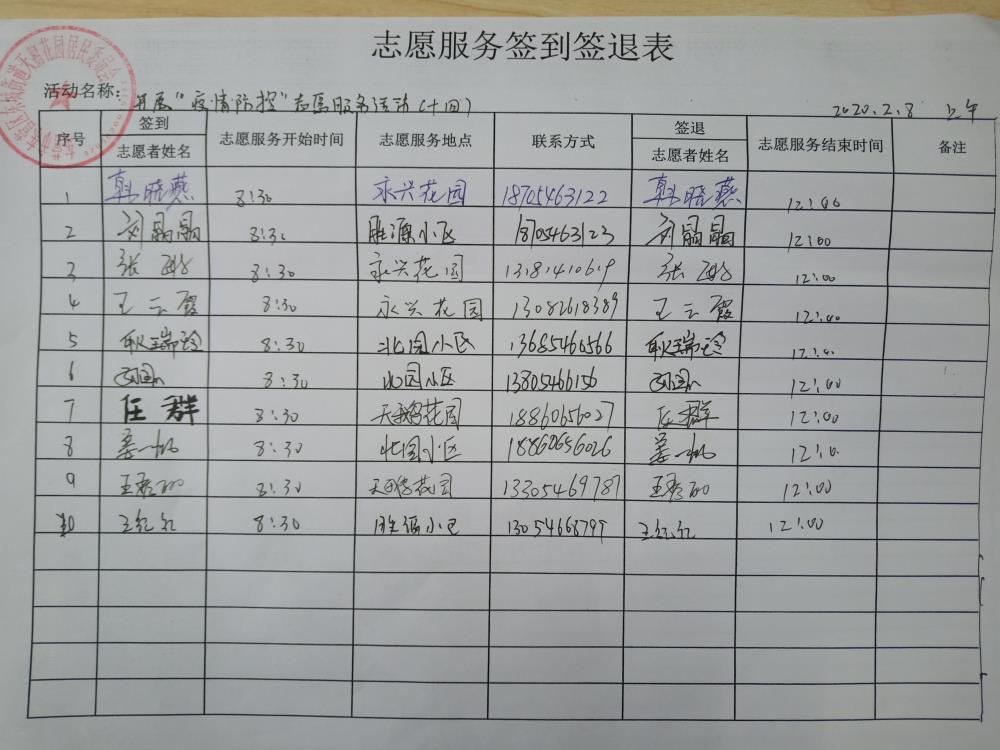 志愿服务签到签退表
活动名称: 开展"疫情防控"志愿服务活动(十四)
2020.2.8 上午
序号 签到 志愿者姓名 志愿服务开始时间 志愿服务地点 联系方式 签退 志愿者姓名 志愿服务结束时间 备注
1 韩晓燕 8:30 永兴花园 18705463122 韩晓燕 12:00
2 刘晶晶 8:30 胜源小区 18705463123 刘晶晶 12:00
3 张 8:30 永兴花园 张 12:00
4 王云霞 8:30 永兴花园 13082618389 王云霞 12:00
5 耿瑞玲 8:30 北园小区 13685460566 耿瑞玲 12:00
6 8:30 北园小区 13805466156 12:00
7 任群 8:30 天鹅花园 18860656027 任群 12:00
8 姜一帆 8:30 北园小区 18860656026 姜一帆 12:00
9 8:30 天鹅花园 13305469787 12:00
10 王红红 8:30 胜源小区 13054668799 王红红 12:00